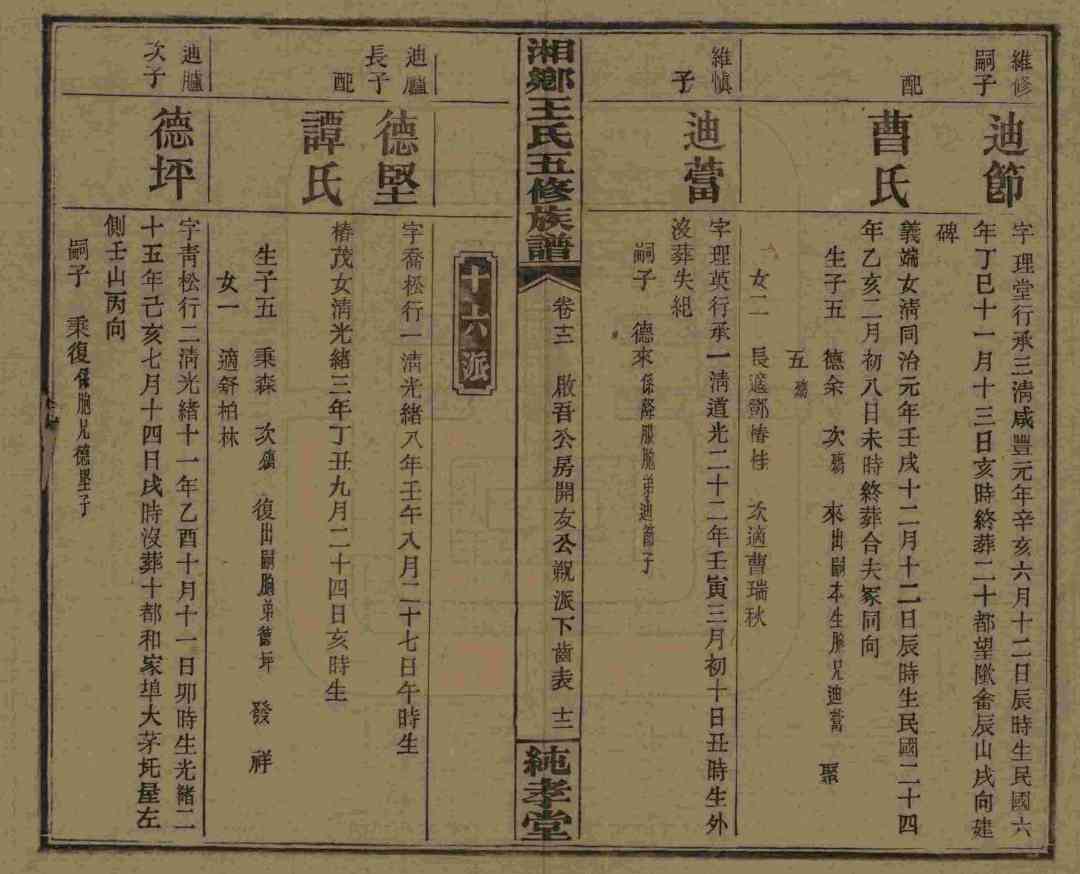 維修
嗣子
迪節
字理堂行承三淸咸豐元年辛亥六月十二日辰時生民國六
年丁巳十一月十三日亥時終葬二十都望墩畬辰山戌向建
碑
配
曹氏
義端女淸同治元年壬戌十二月十二日辰時生民國二十四
年乙亥二月初八日未時終葬合夫冢同向
生子五 德余 次殤 來出嗣本生胞兄迪䔲 聚
五殤
女二 長適鄧椿桂 次適曹瑞秋
維愼
子
迪䔲
字理英行承一淸道光二十二年壬寅三月初十日丑時生外
沒葬失紀
嗣子 德來係降服胞弟迪節子
湘鄉王氏五修族譜
卷士三 啟吾公房開友公覜派下齒表 士二
純孝堂
十六派
迪臚
長子
德堅
字喬松行一淸光緒八年壬午八月二十七日午時生
配
譚氏
椿茂女淸光緒三年丁丑九月二十四日亥時生
生子五 秉森 次殤 復出嗣胞弟德坪 發 祥
女一 適舒柏林
迪臚
次子
德坪
字靑松行二淸光緒十一年乙酉十月十一日卯時生光緒二
十五年己亥七月十四日戌時沒葬十都和家埠大茅坵屋左
側壬山丙向
嗣子 秉復係胞兄德堅子